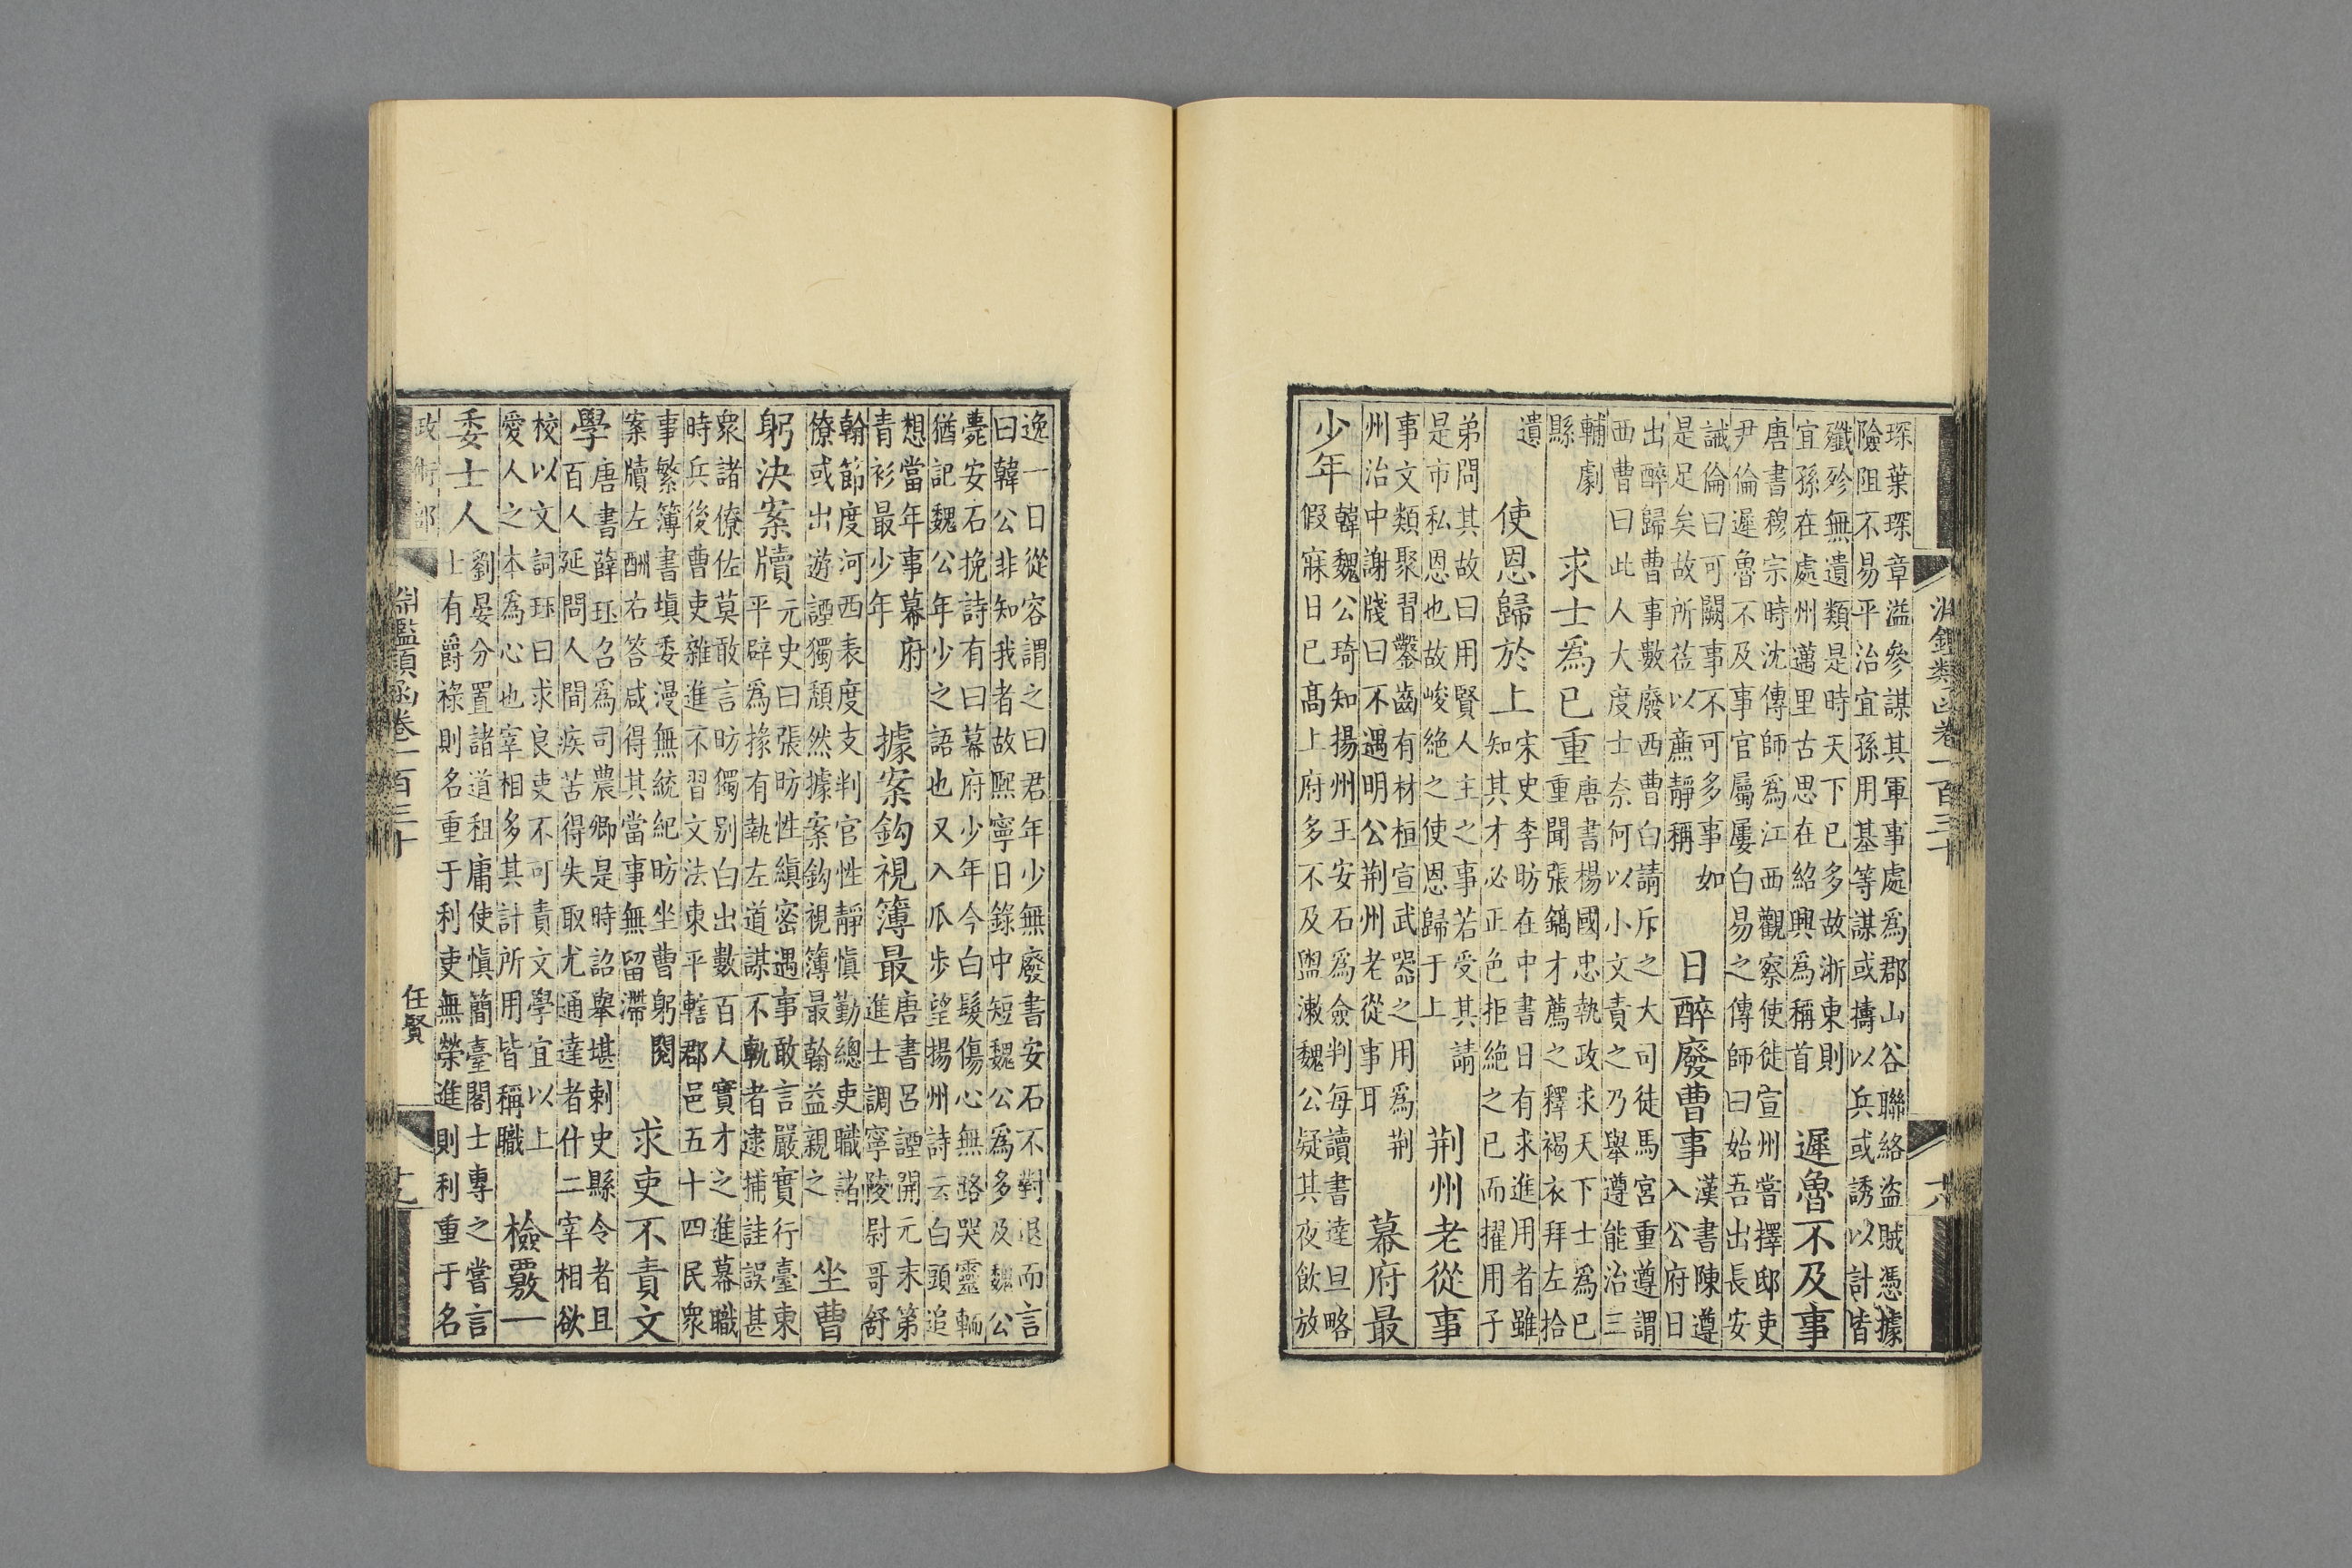 淵鑑類函卷一百三十
琛葉琛章溢參謀其軍事處爲郡山谷聯絡盜賊憑據
險阻不易平治宜孫用基等謀或擣以兵或誘以計皆
殲殄無遺類是時天下已多故浙東則
宜孫在處州邁里古思在紹興爲稱首
遲魯不及事
唐書穆宗時沈傳師爲江西觀察使徙宣州當擇邸吏
尹倫遲魯不及事官屬屢白易之傳師曰始吾出長安
誡倫曰可闕事不可多事如
是足矣故所莅以廉靜稱
日醉廢曹事
漢書陳遵
入公府日
出醉歸曹事數廢西曹白請斥之大司徒馬宮重遵謂
西曹曰此人大度士奈何以小文責之乃舉遵能治三
輔劇
縣
求士爲已重
唐書楊國忠執政求天下士爲已
重聞張鎬才薦之釋褐衣拜左拾
遺
使恩歸於上
宋史李昉在中書日有求進用者雖
知其才必正色拒絕之已而擢用子
弟問其故曰用賢人主之事若受其請
是市私恩也故峻絕之使恩歸于上
荆州老從事
事文類聚習鑿齒有材桓宣武器之用爲荆
州治中謝牋曰不遇明公荆州老從事耳
幕府最
少年
韓魏公琦知揚州王安石爲僉判每讀書達旦略
假寐日已高上府多不及盥漱魏公疑其夜飲放
逸一日從容謂之曰君年少無廢書安石不對退而言
曰韓公非知我者故熙寧日錄中短魏公爲多及魏公
薨安石挽詩有曰幕府少年今白髮傷心無路哭靈輀
猶記魏公年少之語也又入瓜步望揚州詩云白頭追
想當年事幕府
青衫最少年
據案鈎視簿最
唐書呂諲開元末第
進士調寧陵尉哥舒
翰節度河西表度支判官性靜慎勤總吏職諸
僚或出遊諲獨頹然據案鈎視簿最翰益親之
坐曹
躬決案牘
元史曰張昉性縝密遇事敢言嚴實行臺東
平辟爲掾有執左道謀不軌者逮捕詿誤甚
衆諸僚佐莫敢言昉獨別白出數百人實才之進幕職
時兵後曹吏雜進不習文法東平轄郡邑五十四民衆
事繁簿書塡委漫無統紀昉坐曹躬閱
案牘左酬右答咸得其當事無留滯
求吏不責文
學
唐書薛珏召爲司農卿是時詔舉堪刺史縣令者且
百人延問人間疾苦得失取尤通達者什二宰相欲
校以文詞珏曰求良吏不可責文學宜以上
愛人之本爲心也宰相多其計所用皆稱職
檢覈一
委士人
劉晏分置諸道租庸使慎簡臺閣士專之嘗言
士有爵祿則名重于利吏無榮進則利重于名
政術部
淵鑑類函卷一百三十
任賢